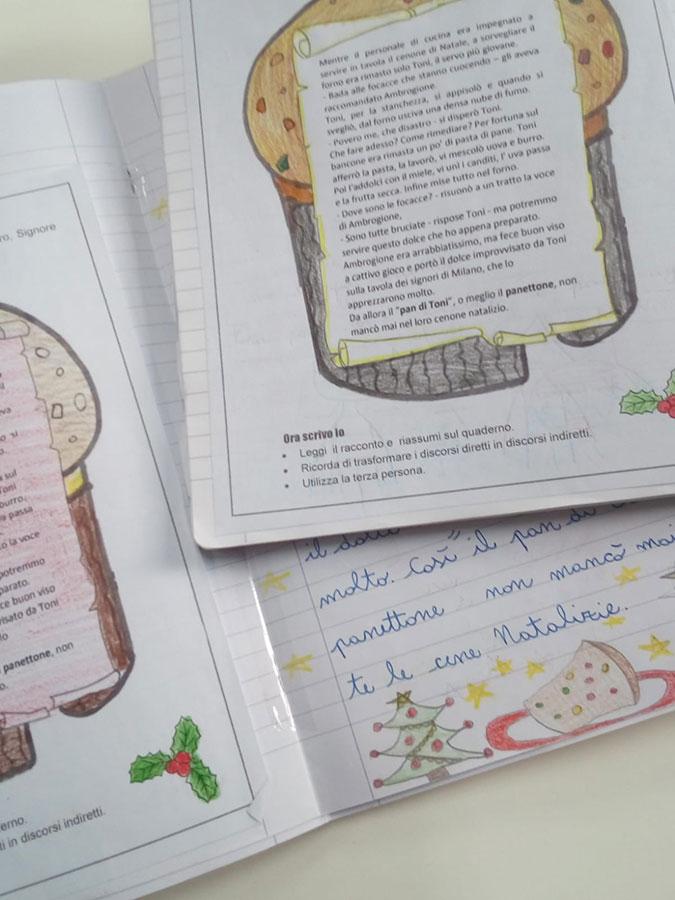 Mentre il personale di cucina era impegnato a
servire in tavola il cenone di Natale, a sorvegliare il
forno era rimasto solo Toni, il servo più giovane.
- Bada alle focacce che stanno cuocendo – gli aveva
raccomandato Ambrogione.
Toni, per la stanchezza, si appisolò e quando si
svegliò, dal forno usciva una densa nube di fumo.
- Povero me, che disastro - si disperò Toni.
Che fare adesso? Come rimediare? Per fortuna sul
bancone era rimasta un po' di pasta di pane. Toni
afferrò la pasta, la lavorò, vi mescolò uova e burro.
Poi l'addolcì con il miele, vi unì i canditi, l' uva passa
e la frutta secca. Infine mise tutto nel forno.
- Dove sono le focacce? - risuonò a un tratto la voce
di Ambrogione,
- Sono tutte bruciate - rispose Toni - ma potremmo
servire questo dolce che ho appena preparato.
Ambrogione era arrabbiatissimo, ma fece buon viso
a cattivo gioco e portò il dolce improvvisato da Toni
sulla tavola dei signori di Milano, che lo
apprezzarono molto.
Da allora il "pan di Toni", o meglio il panettone, non
mancò mai nel loro cenone natalizio.
Ora scrivo io
• Leggi il racconto e riassumi sul quaderno.
• Ricorda di trasformare i discorsi diretti in discorsi indiretti.
• Utilizza la terza persona.
Signore
si
sul
Toni
burro.
passa
la voce
potremmo
parato.
ce buon viso
isato da Toni
lo
panettone, non
erno.
in discorsi indiretti.
il
molto. Così il pan di
panettone non mancò mai
te le cene Natalizie.